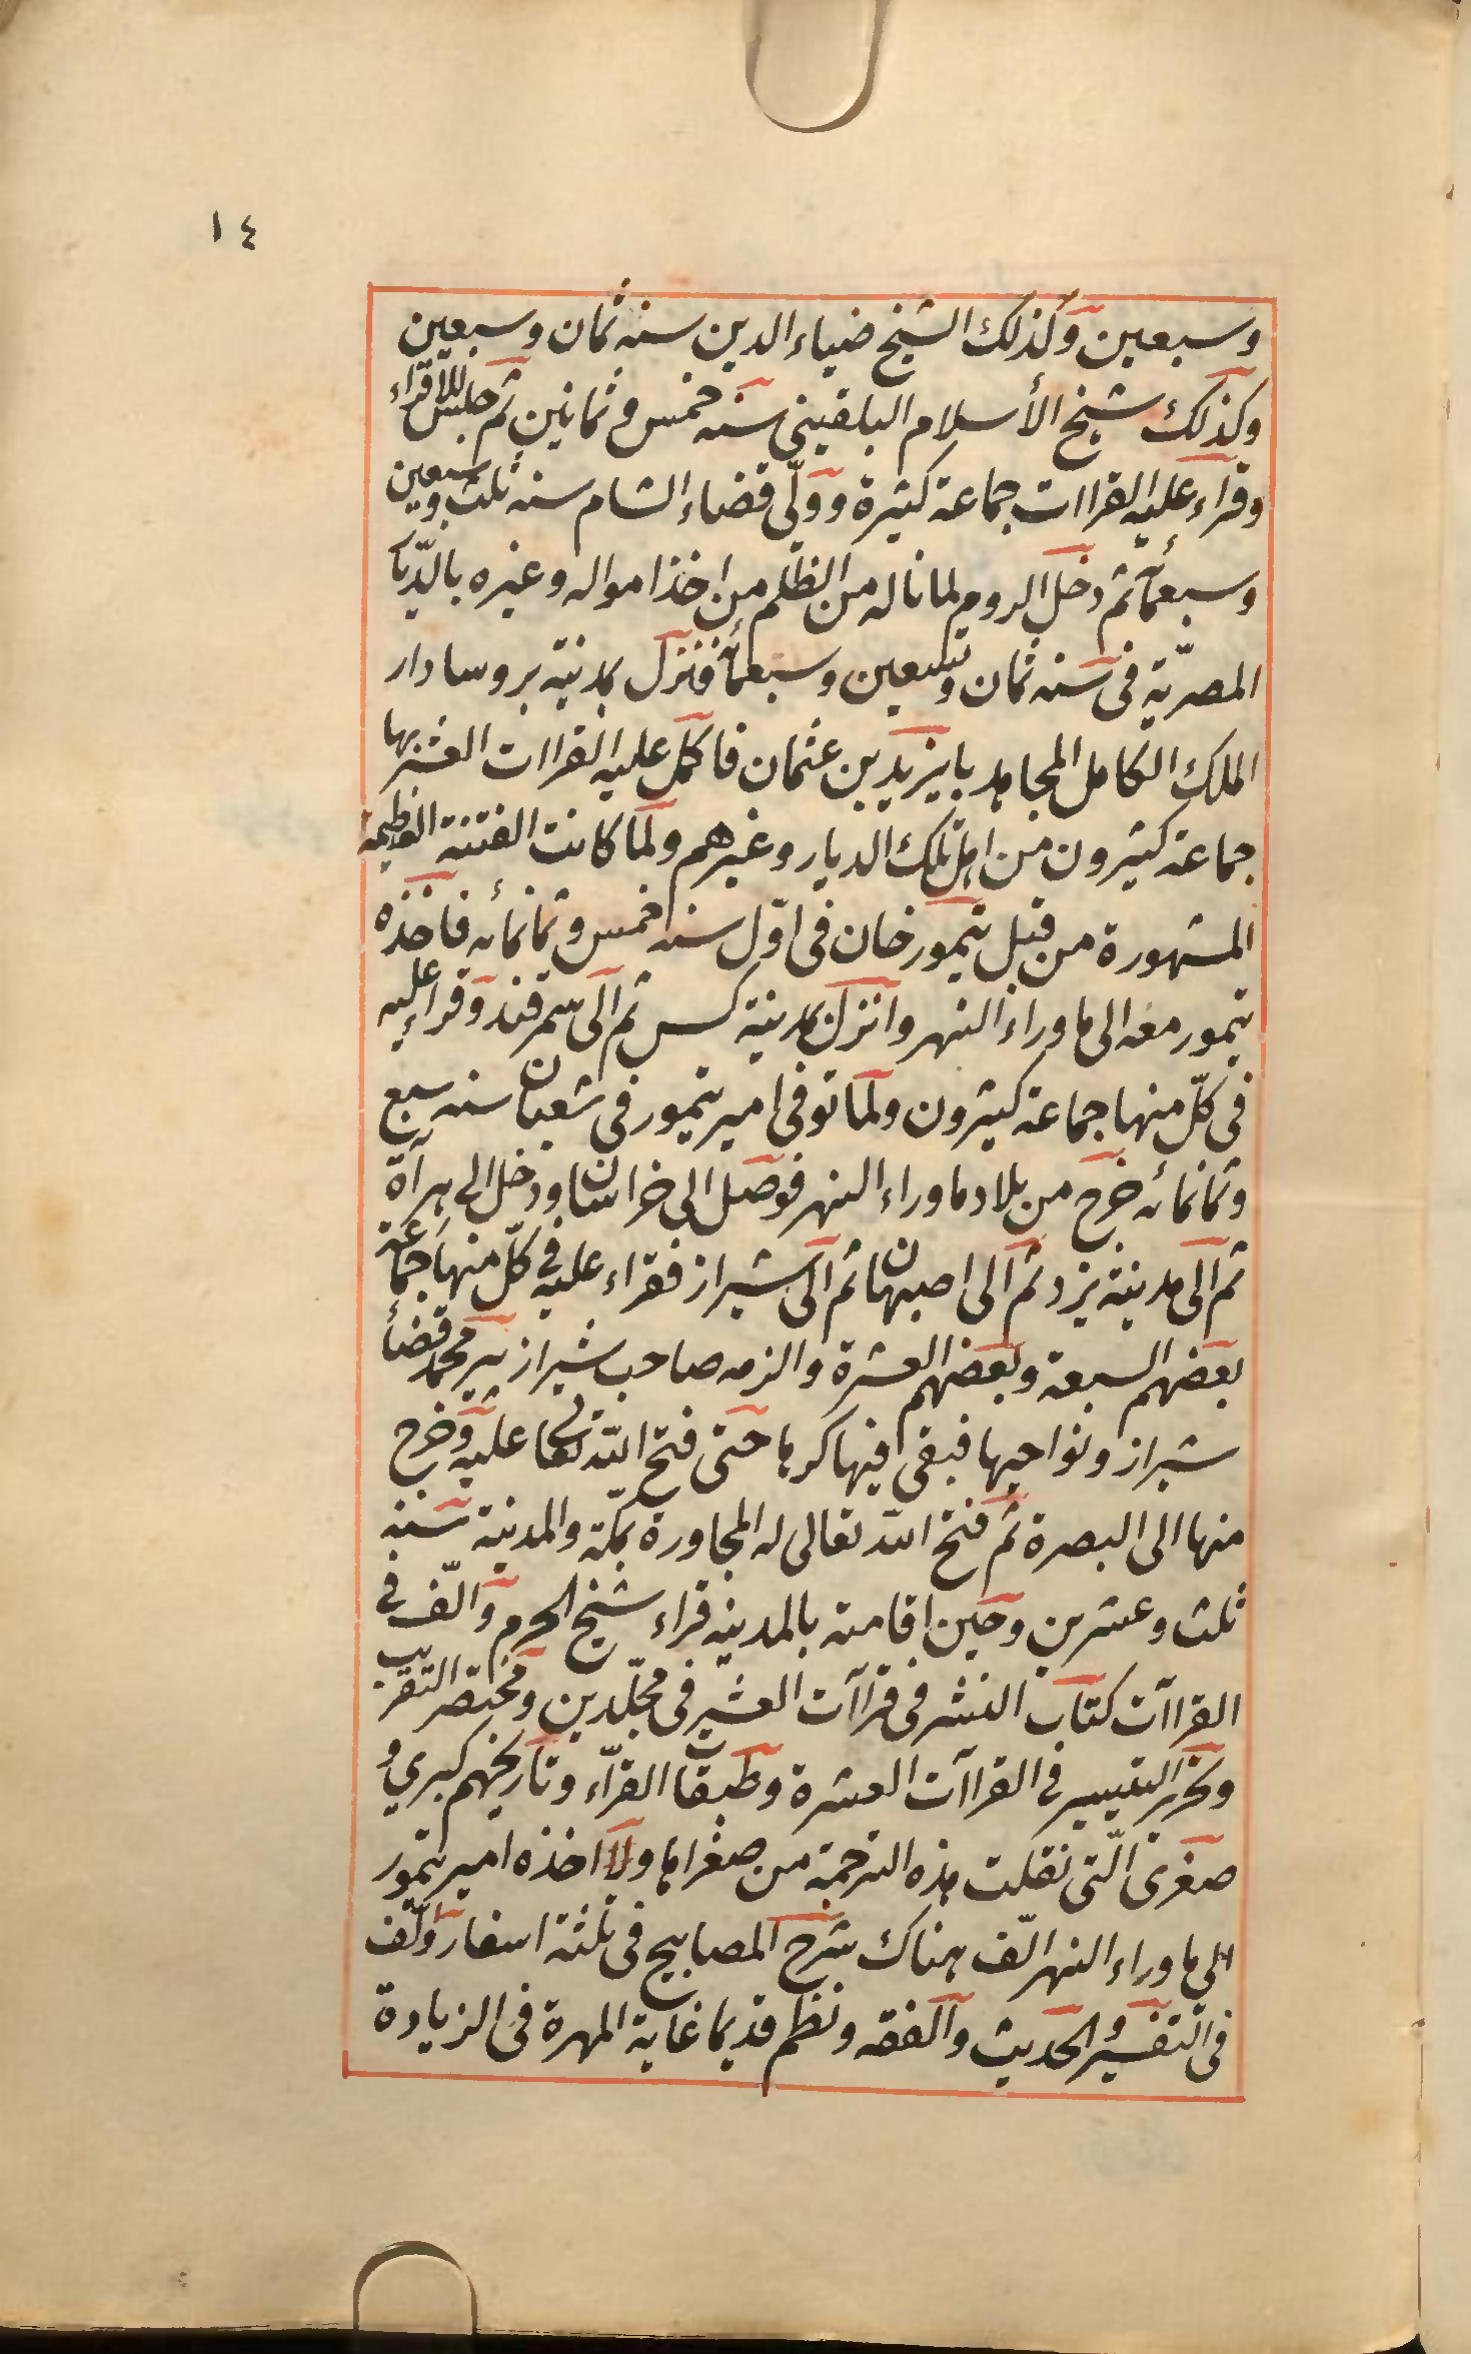 ١٤
وسبعين وكذلك الشيخ ضياء الدين سنه ثمان وسبعين
وكذلك شيخ الأسلام البلقيني سنه خمس وثمانين ثم جلس للاقراء
وقراء عليه القراات جماعة كثيرة وولّى قضاء الشام سنه ثلث وتسعين
وسبعمأئة ثم دخل الروم لما ناله من الظلم من اخذ امواله وغيره بالدّيا
المصريّة فى سنه ثمان وتسعين وسبعمائة فنزل بمدينة بروسا دار
الملك الكامل المجاهد بايزيد بن عثمان فاكمل عليه القراات العشر بها
جماعة كثيرون من اهل تلك الديار وغيرهم ولما كانت الفتنة العظيمة
المشهورة من قبل تيمورخان فى اوّل سنه خمس وثمانمائه فاخذه
تيمور معه الى ما وراء النهر وانزل بمدينة كس ثم الى سمرقند وقراء عليه
فى كلّ منها جماعة كثيرون ولما توفى امير تيمور فى شعبان سنه سبع
وثمانمائه خرج من بلاد ما وراء النهر فوصل الى خراسان ودخل الى هرآة
ثم الى مدينة يزد ثم الى اصبهان ثم الى شيراز فقراء عليه فى كلّ منها جماعة
بعضهم السبعة وبعضهم العشرة والزمه صاحب شيراز پير محمد قضاأ
شيراز ونواحيها فبقى فيها كرها حتى فتح الله تعالى عليه وخرج
منها الى البصرة ثم فتح الله تعالى له المجاورة بمكة والمدينة سنه
ثلث وعشرين وحين اقامته بالمدينه قراء شيخ الحرم والّف فى
القراآت كتاب النشر فى قراآت العشر فى مجلّدين ومختصر التقريب
وتحرير التيسير فى القراآت العشرة وطبقات القرّاء وتاريخهم كبرى و
صغرى الّتى نقلت هذه الترجمة من صغراها ولما اخذه امير تيمور
الى ما وراء النهر الّف هناك شرح المصابيح فى ثلثة اسفار والّف
فى التفسير والحديث والفقه ونظم قديما غاية المهرة فى الزيادة